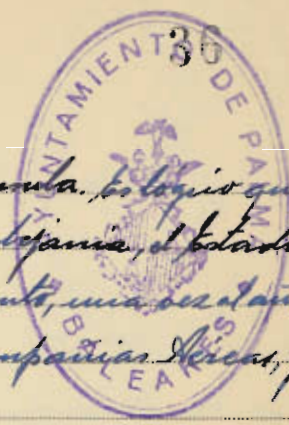 36
AYUNTAMIENTO DE PALMA
BALEARES
nsula. Es logico qu
lejania, el Estado
nto, una vez al añ
mpañias Aereas, p